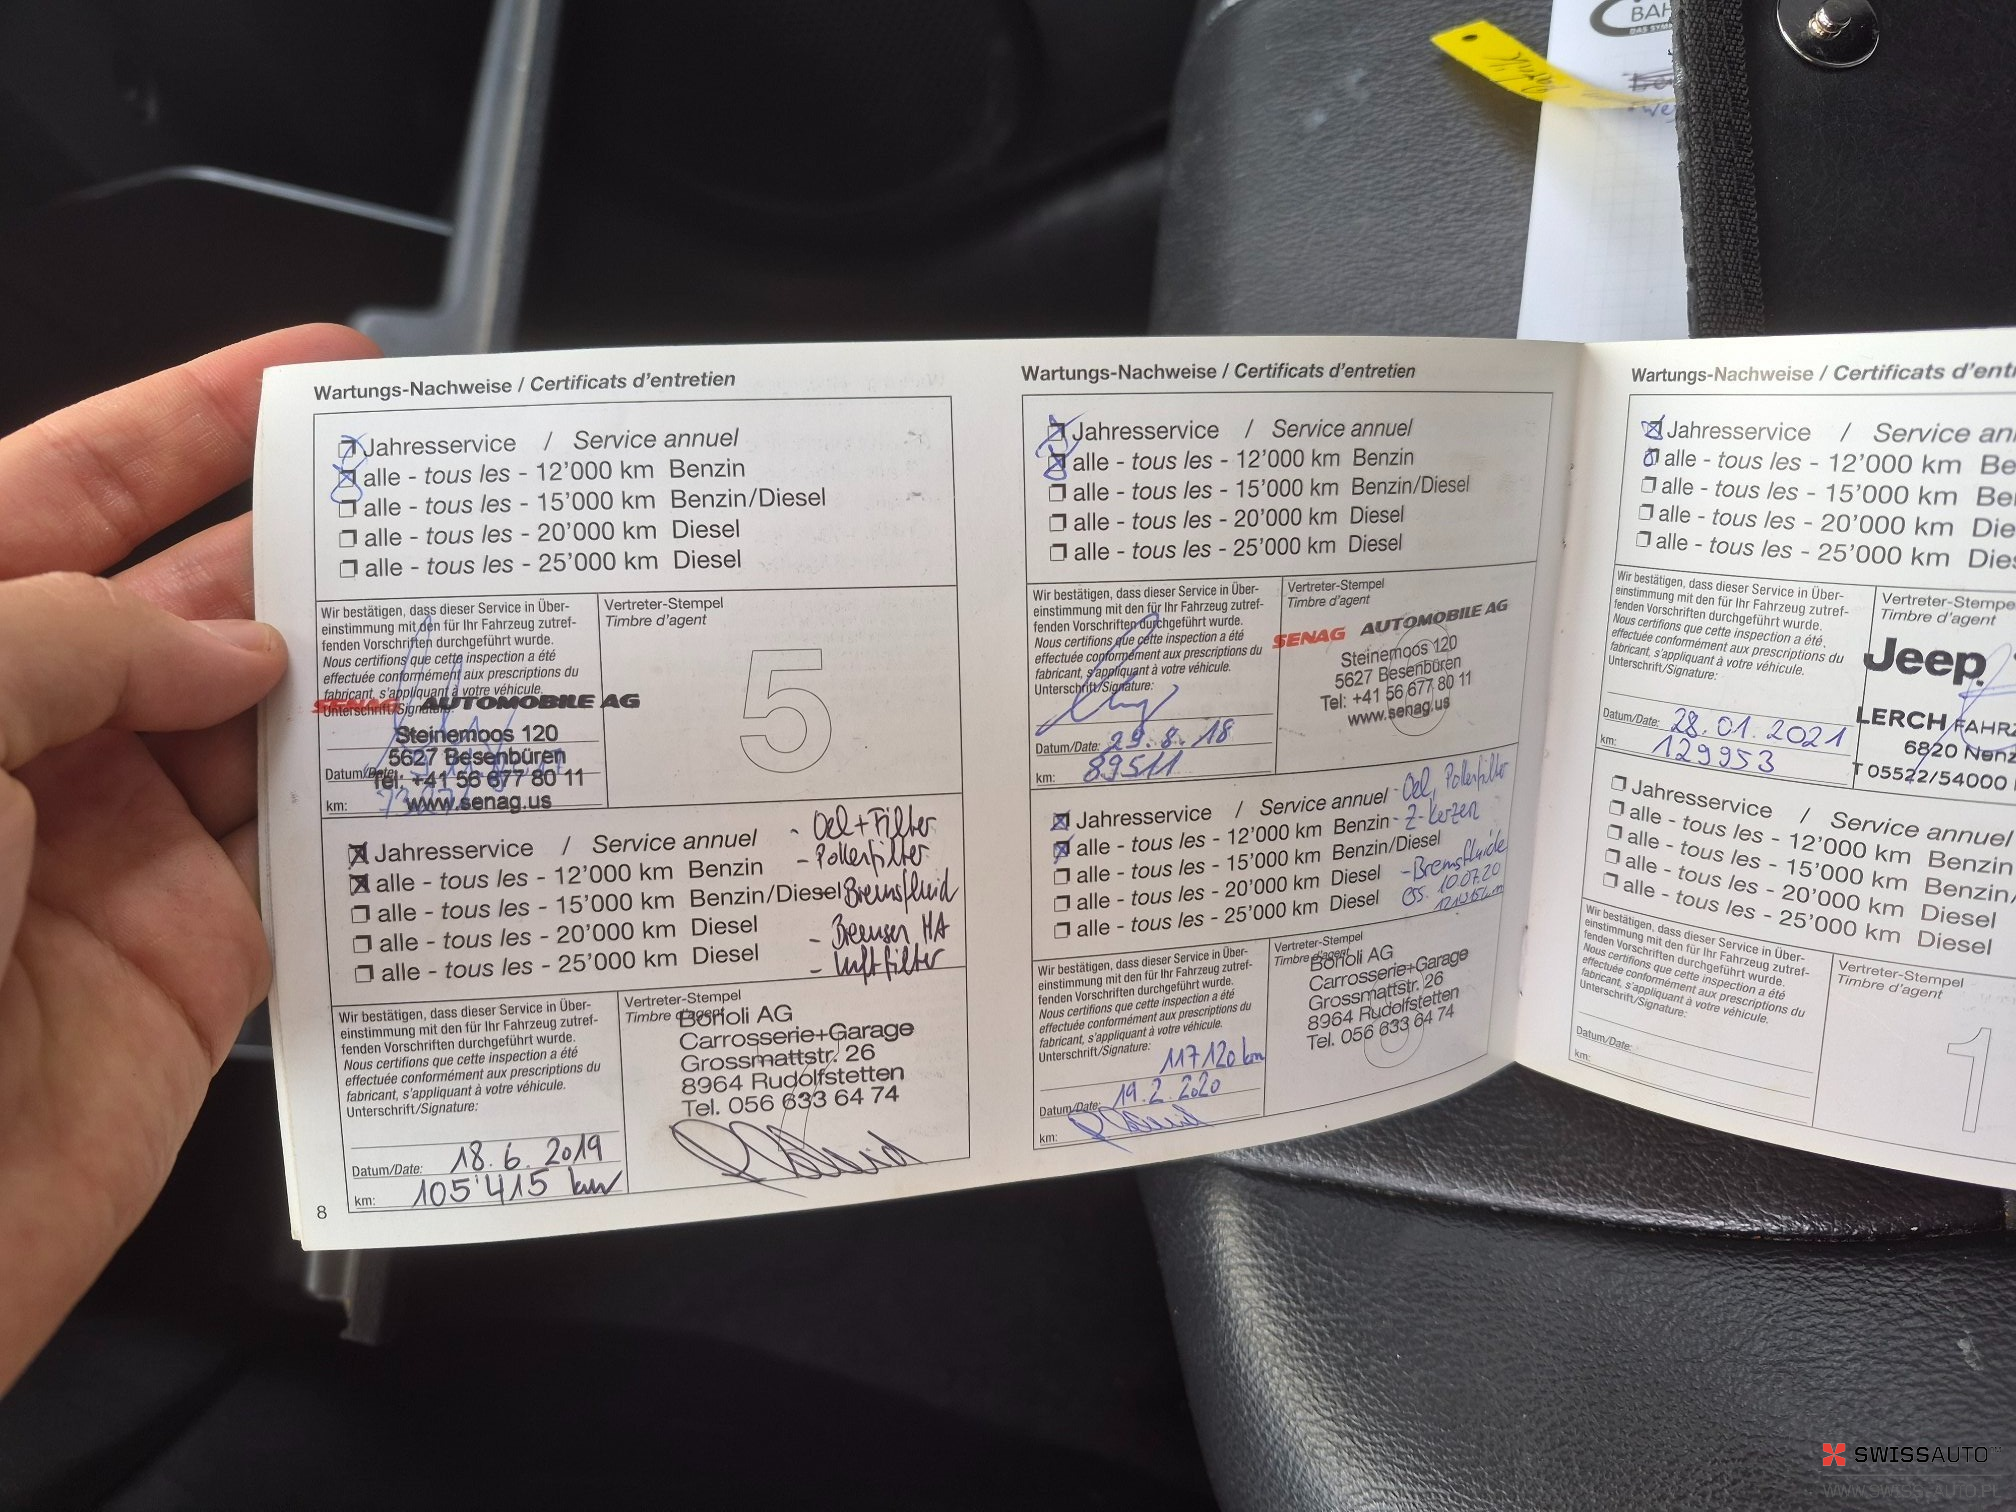 BAH
Wartungs-Nachweise / Certificats d'entretien
Jahresservice / Service annuel
alle - tous les - 12'000 km Benzin
alle - tous les - 15'000 km Benzin/Diesel
alle - tous les - 20'000 km Diesel
alle - tous les - 25'000 km Diesel
Wir bestätigen, dass dieser Service in Über-
einstimmung mit den für Ihr Fahrzeug zutref-
fenden Vorschriften durchgeführt wurde.
Nous certifions que cette inspection a été
effectuée conformément aux prescriptions du
fabricant, s'appliquant à votre véhicule.
Unterschrift/Signature:
Vertreter-Stempel
Timbre d'agent
5
SENAG AUTOMOBILE AG
Steinemoos 120
5627 Besenbüren
Tel: +41 56 677 80 11
www.senag.us
Datum/Date:
km:
Jahresservice / Service annuel
alle - tous les - 12'000 km Benzin
alle - tous les - 15'000 km Benzin/Diesel
alle - tous les - 20'000 km Diesel
alle - tous les - 25'000 km Diesel
- Oel + Filter
- Pollenfilter
- Bremsfluid
- Bremsen HA
- Luftfilter
Wir bestätigen, dass dieser Service in Über-
einstimmung mit den für Ihr Fahrzeug zutref-
fenden Vorschriften durchgeführt wurde.
Nous certifions que cette inspection a été
effectuée conformément aux prescriptions du
fabricant, s'appliquant à votre véhicule.
Unterschrift/Signature:
Vertreter-Stempel
Timbre d'agent
Bonoli AG
Carrosserie+Garage
Grossmattstr. 26
8964 Rudolfstetten
Tel. 056 633 64 74
Datum/Date: 18.6.2019
km: 105'415 km
8
Wartungs-Nachweise / Certificats d'entretien
Jahresservice / Service annuel
alle - tous les - 12'000 km Benzin
alle - tous les - 15'000 km Benzin/Diesel
alle - tous les - 20'000 km Diesel
alle - tous les - 25'000 km Diesel
Wir bestätigen, dass dieser Service in Über-
einstimmung mit den für Ihr Fahrzeug zutref-
fenden Vorschriften durchgeführt wurde.
Nous certifions que cette inspection a été
effectuée conformément aux prescriptions du
fabricant, s'appliquant à votre véhicule.
Unterschrift/Signature:
Vertreter-Stempel
Timbre d'agent
SENAG AUTOMOBILE AG
Steinemoos 120
5627 Besenbüren
Tel: +41 56 677 80 11
www.senag.us
Datum/Date: 29.8.18
km: 89511
Jahresservice / Service annuel
alle - tous les - 12'000 km Benzin
alle - tous les - 15'000 km Benzin/Diesel
alle - tous les - 20'000 km Diesel
alle - tous les - 25'000 km Diesel
- Oel, Pollenfilter
- Z-kerzen
- Bremsfluide
10.07.20
Wir bestätigen, dass dieser Service in Über-
einstimmung mit den für Ihr Fahrzeug zutref-
fenden Vorschriften durchgeführt wurde.
Nous certifions que cette inspection a été
effectuée conformément aux prescriptions du
fabricant, s'appliquant à votre véhicule.
Unterschrift/Signature:
Vertreter-Stempel
Timbre d'agent
Bonoli AG
Carrosserie+Garage
Grossmattstr. 26
8964 Rudolfstetten
Tel. 056 633 64 74
117120 km
Datum/Date: 19.2.2020
km:
Wartungs-Nachweise / Certificats d'entr
Jahresservice / Service an
alle - tous les - 12'000 km Be
alle - tous les - 15'000 km Be
alle - tous les - 20'000 km Die
alle - tous les - 25'000 km Dies
Wir bestätigen, dass dieser Service in Über-
einstimmung mit den für Ihr Fahrzeug zutref-
fenden Vorschriften durchgeführt wurde.
Nous certifions que cette inspection a été
effectuée conformément aux prescriptions du
fabricant, s'appliquant à votre véhicule.
Unterschrift/Signature:
Vertreter-Stempe
Timbre d'agent
Jeep
LERCH FAHRZ
6820 Nenz
T 05522/54000
Datum/Date: 28.01.2021
km: 129953
Jahresservice / Service annuel
alle - tous les - 12'000 km Benzin
alle - tous les - 15'000 km Benzin/
alle - tous les - 20'000 km Diesel
alle - tous les - 25'000 km Diesel
Wir bestätigen, dass dieser Service in Über-
einstimmung mit den für Ihr Fahrzeug zutref-
fenden Vorschriften durchgeführt wurde.
Nous certifions que cette inspection a été
effectuée conformément aux prescriptions du
fabricant, s'appliquant à votre véhicule.
Unterschrift/Signature:
Vertreter-Stempel
Timbre d'agent
1
Datum/Date:
km:
SWISSAUTO
WWW.SWISSAUTO.PL